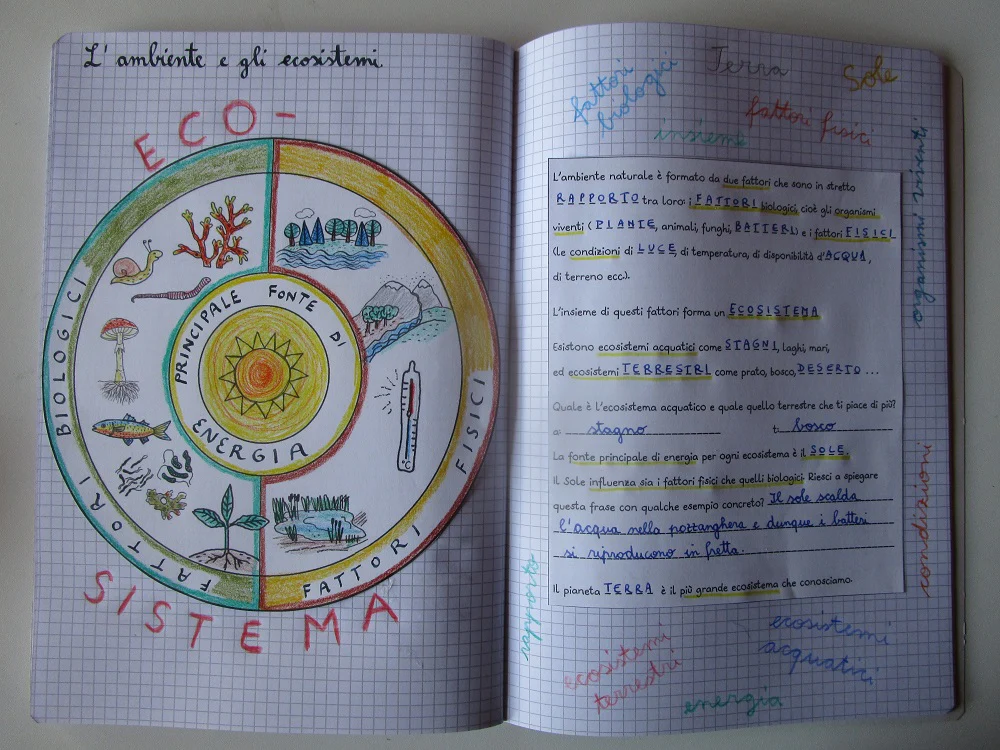 L'ambiente e gli ecosistemi
ECO-
SISTEMA
FATTORI BIOLOGICI
FATTORI FISICI
PRINCIPALE FONTE DI
ENERGIA
Terra
Sole
fattori
biologici
fattori fisici
insieme
organismi viventi
L'ambiente naturale è formato da due fattori che sono in stretto
RAPPORTO tra loro: i FATTORI biologici, cioè gli organismi
viventi (PIANTE, animali, funghi, BATTERI) e i fattori FISICI
(le condizioni di LUCE, di temperatura, di disponibilità d'ACQUA,
di terreno ecc.).
L'insieme di questi fattori forma un ECOSISTEMA
Esistono ecosistemi acquatici come STAGNI, laghi, mari,
ed ecosistemi TERRESTRI come prato, bosco, DESERTO ...
Quale è l'ecosistema acquatico e quale quello terrestre che ti piace di più?
a: stagno t: bosco
La fonte principale di energia per ogni ecosistema è il SOLE.
Il Sole influenza sia i fattori fisici che quelli biologici. Riesci a spiegare
questa frase con qualche esempio concreto? Il sole scalda
l'acqua nella pozzanghera e dunque i batteri
si riproducono in fretta.
Il pianeta TERRA è il più grande ecosistema che conosciamo.
condizioni
rapporto
ecosistemi
terrestri
ecosistemi
acquatici
energia